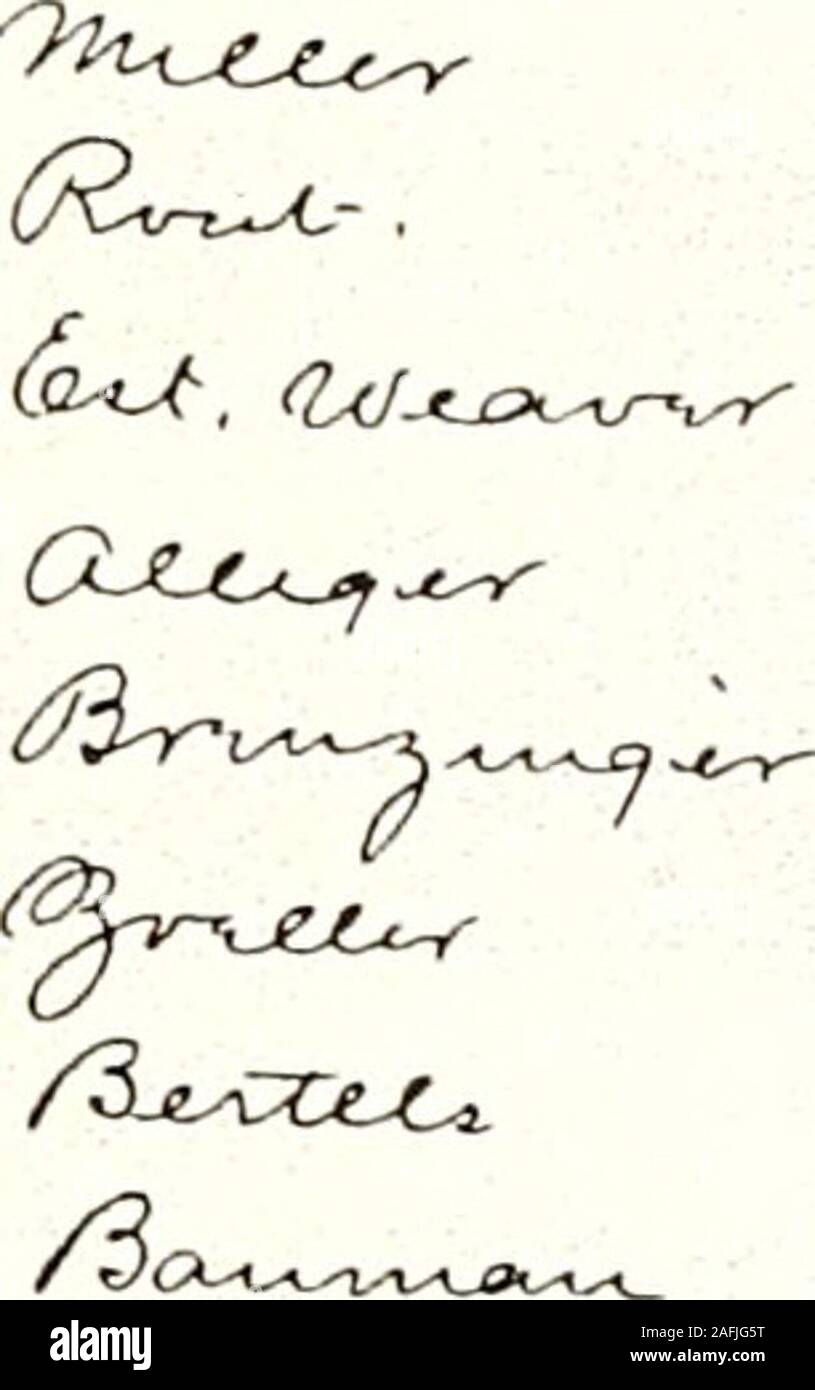 Miller
Rout.
Est. Weaver
Alliger
Brinzinger
Zoeller
Bertels
Bauman
alamy
Image ID: 2AFJG5T
www.alamy.com